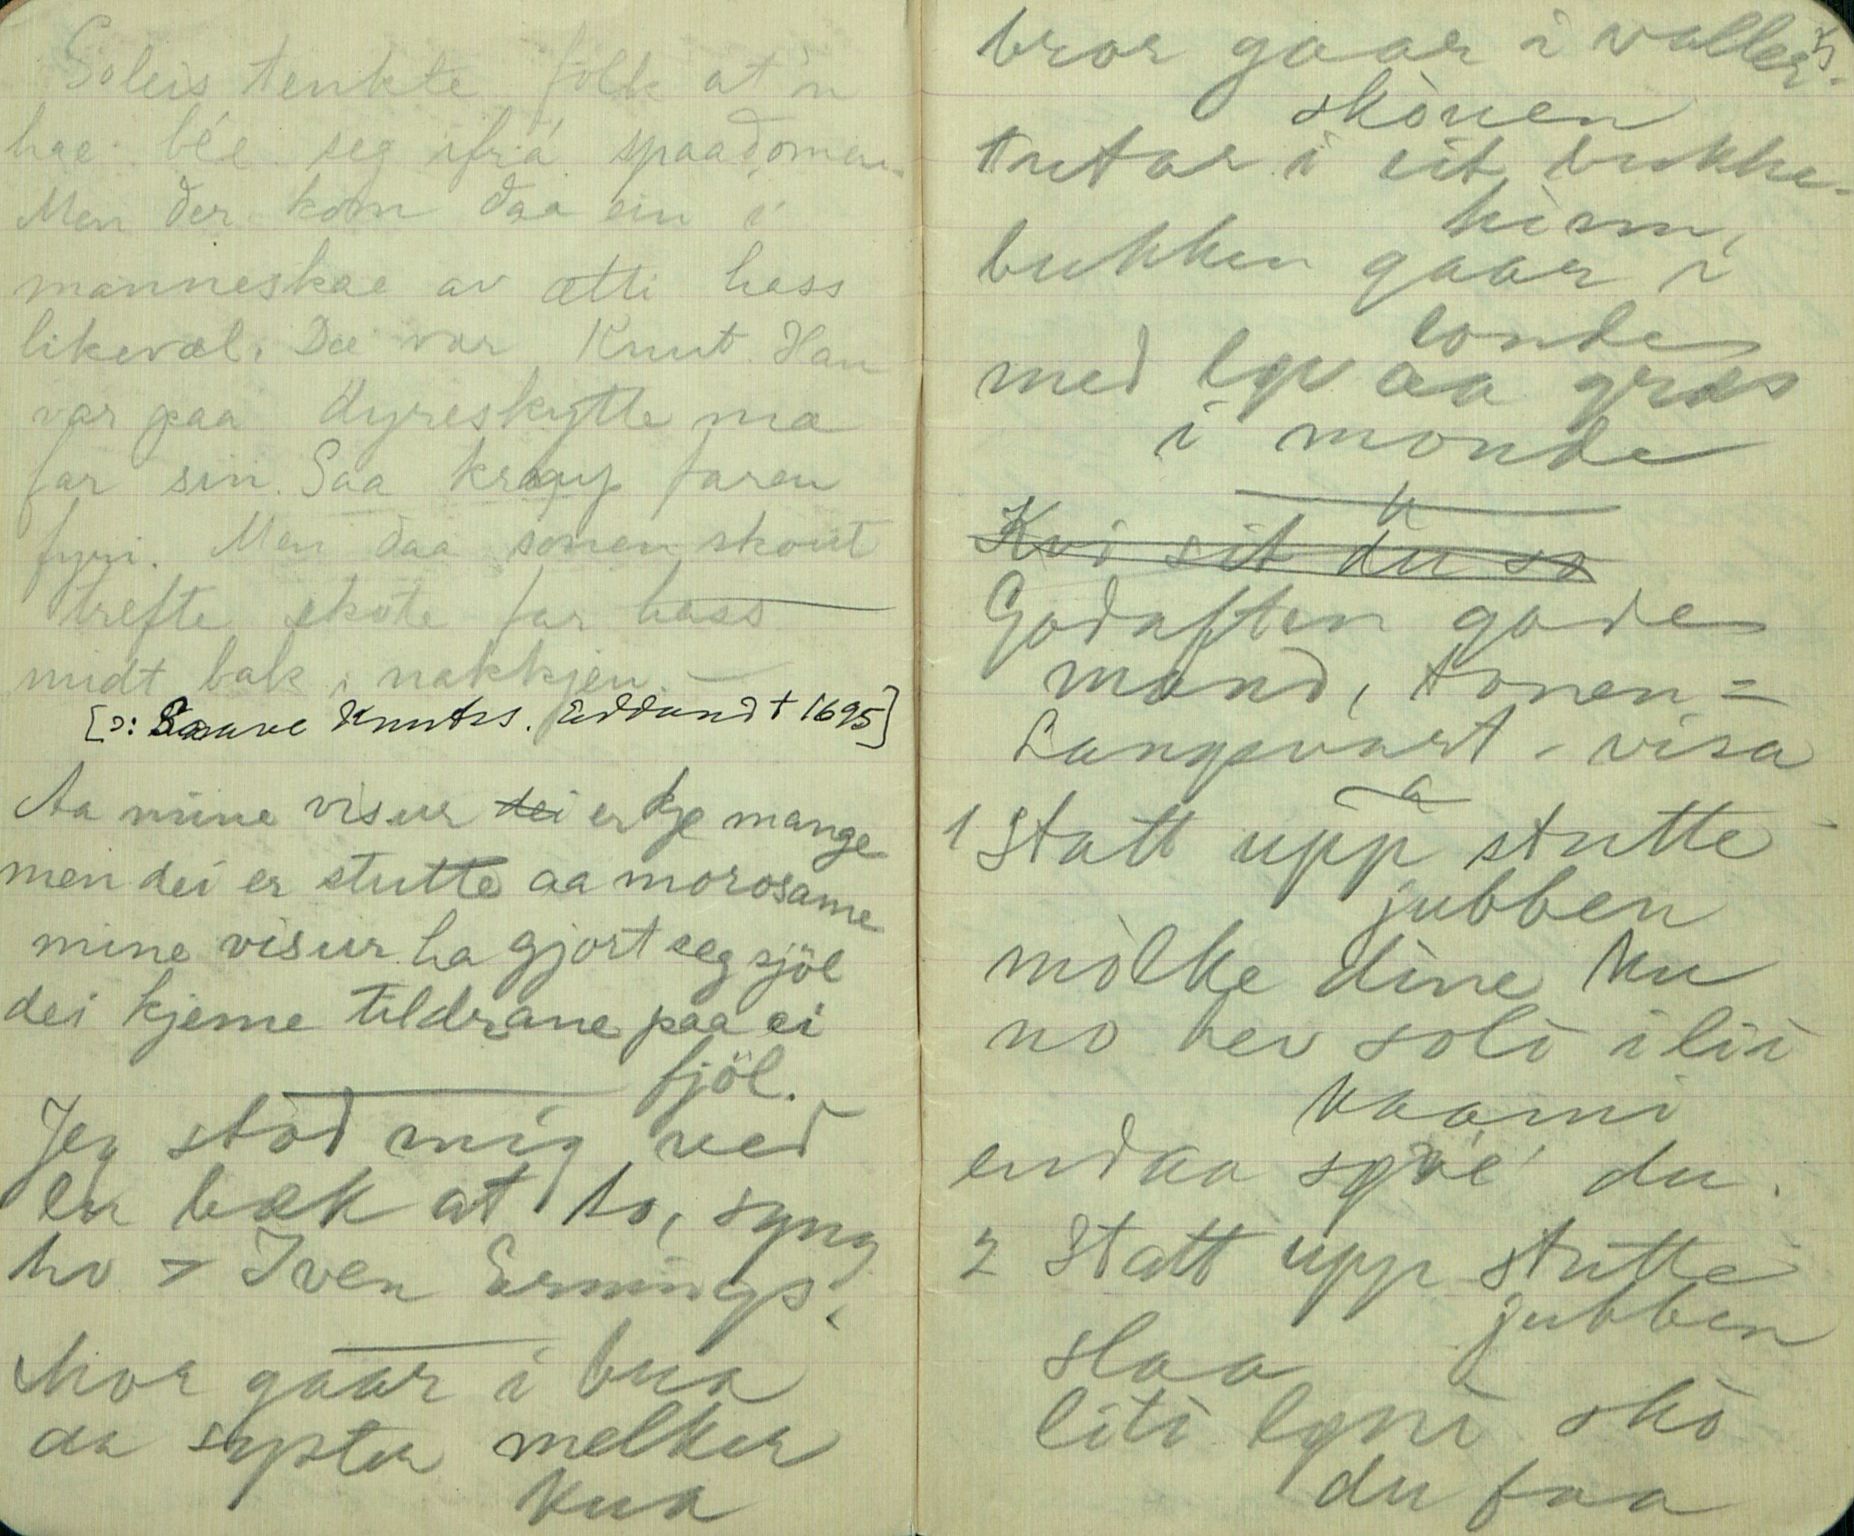 Soleis tenkte folk at 'n
hae bée seg ifrá spaadomen.
Men der kom daa ein i
manneskae av ætti hass
likevæl. Dæ var Knut. Han
var paa dyreskytte mæ
far sin. Saa kraup faren
fyri. Men daa sonen skout
trefte skote far hass
midt bak i nakkjen. —
[ɔ: Saave Knuts. Eddand † 1695]
Aa mine visur dei er kje mange
men dei er stutte aa morosame
mine visur ha gjort seg sjöl
dei kjeme tildrane paa ei
fjöl.
Jeg stod mig ved
en bæk at to, syng
ho - Iven Ernings.
Mor gaar i bua
aa syster melker
kua
bror gaar i valler
skòuen
tutar i sit bukke-
hinn,
bukken gaar i
londe
med lyv aa græs
i monde
Kvi sit du so
Godaften gode
mand, tonen =
Langevart - visa
1 Statt upp stutte
jubben
mòlke dine ku
no hev soli i lii
kaami
endaa syve' du.
2 Statt upp stutte
jubben
slaa
liti lyni skò
du faa